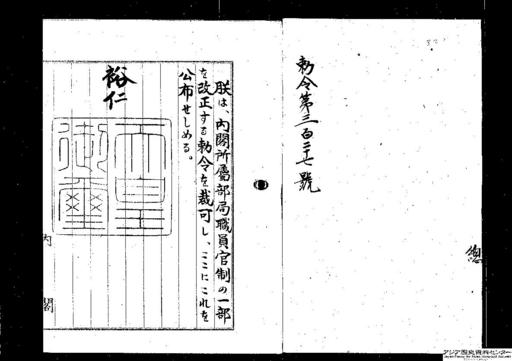 勅令第三百二十七號
朕は、内閣所屬部局職員官制の一部
を改正する勅令を裁可し、ここにこれを
公布せしめる。
裕仁
天皇
御璽
内閣
総
アジア歴史資料センター